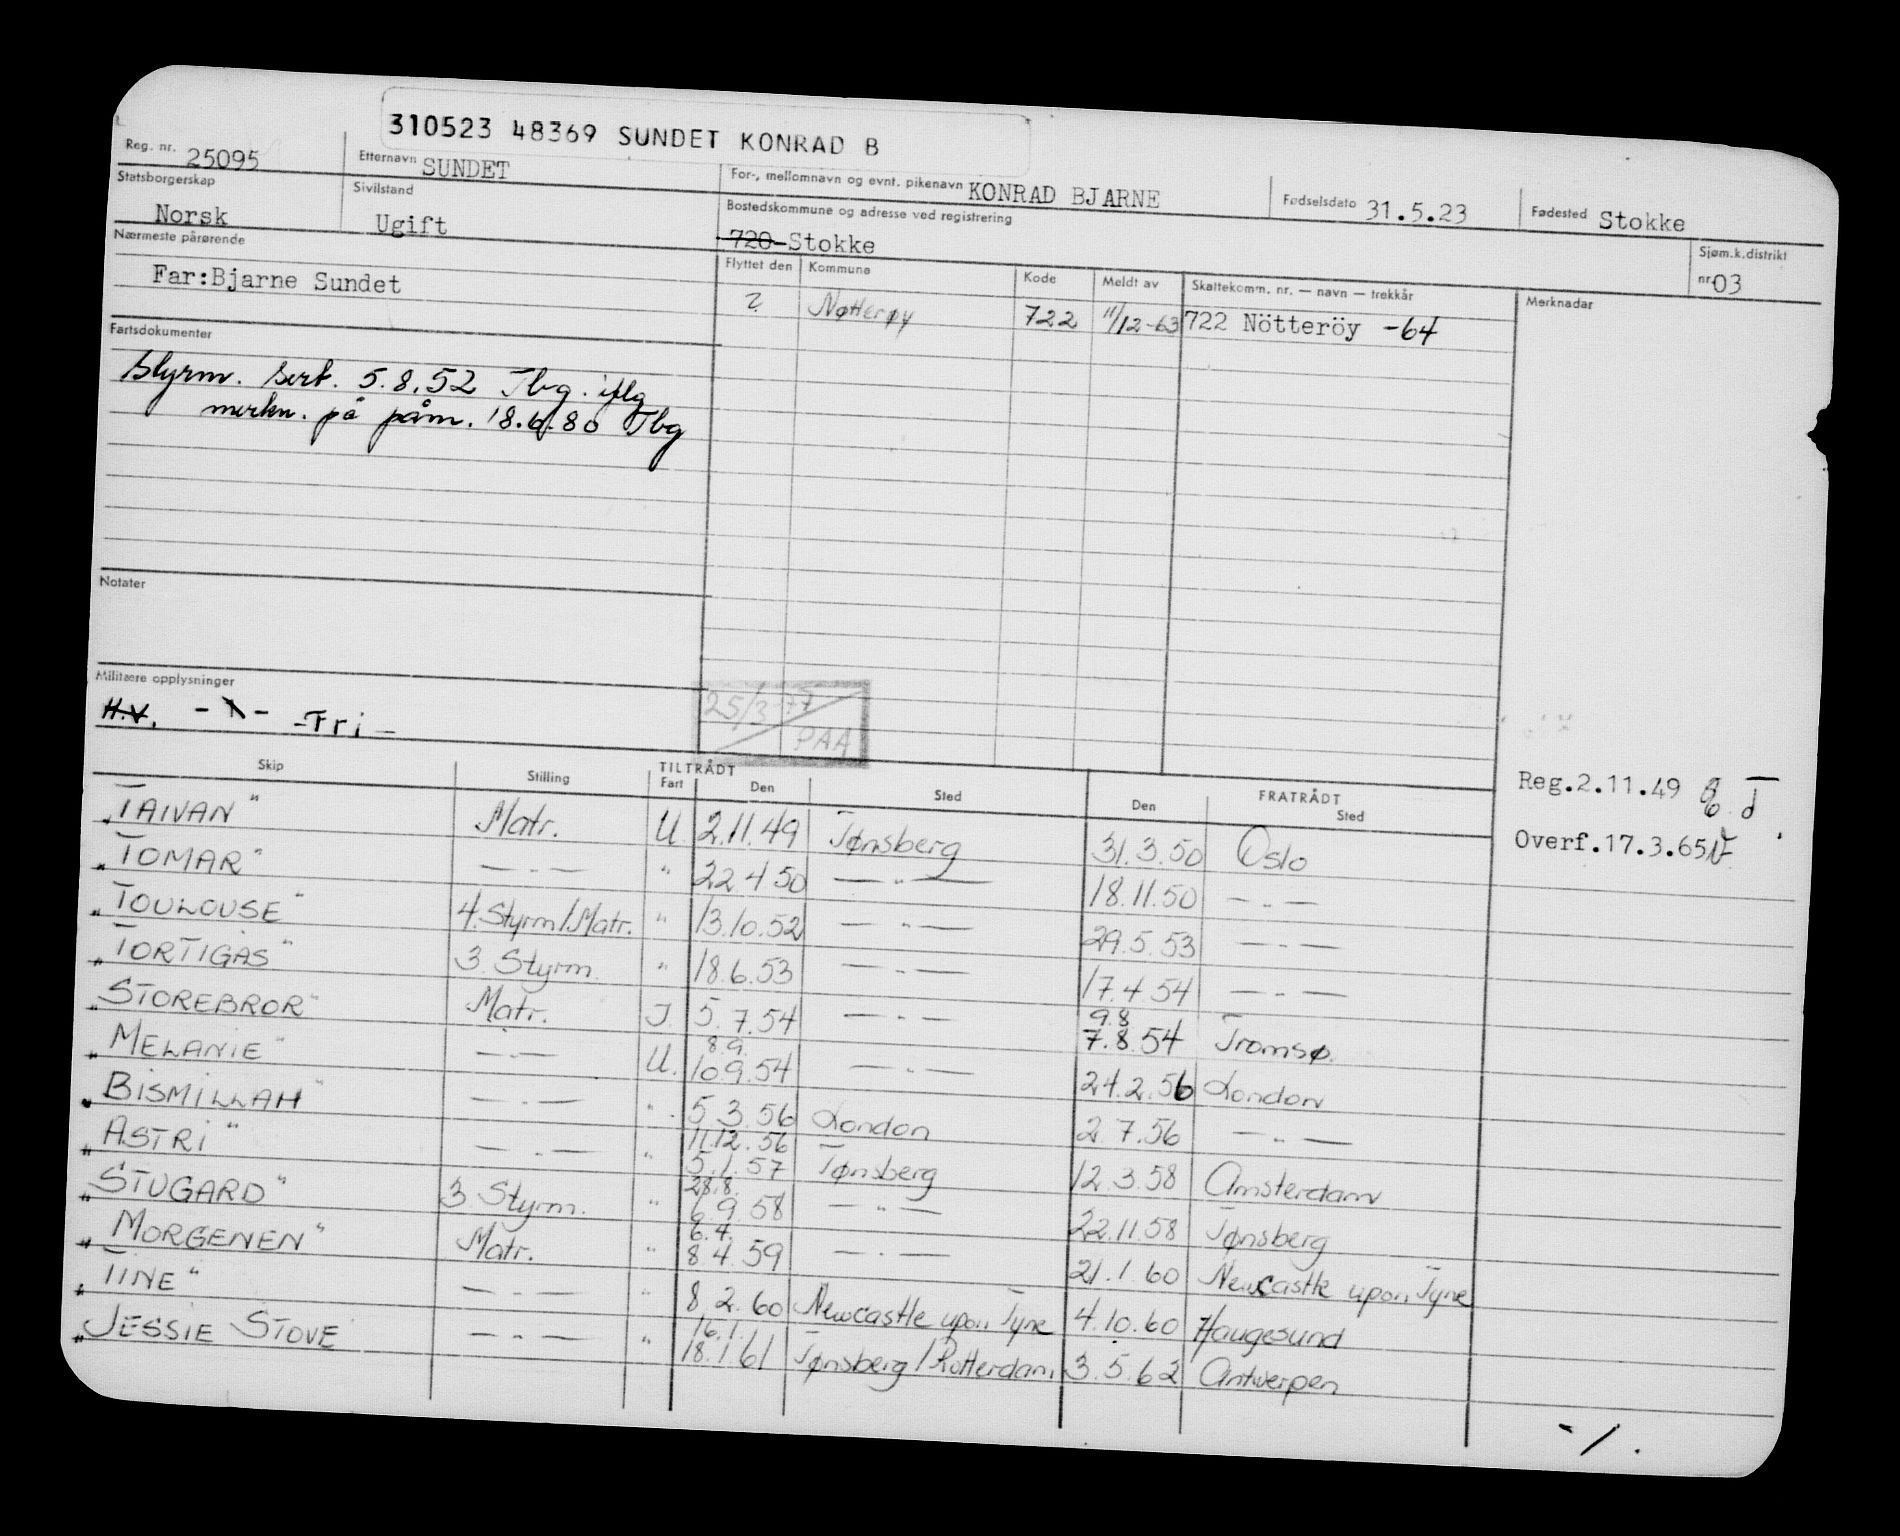 310523 48369 SUNDET KONRAD B
Reg. nr. 25095 Etternavn SUNDET For-, mellomnavn og evnt. pikenavn KONRAD BJARNE Fødselsdato 31.5.23 Fødested Stokke
Statsborgerskap Norsk Sivilstand Ugift Bostedskommune og adresse ved registrering 720 Stokke Sjøm.k.distrikt nr 03
Nærmeste pårørende Flyttet den Kommune Kode Meldt av Skattekomm. nr. — navn — trekkår Merknader
Far:Bjarne Sundet ? Nøtterøy 722 11/12-63 722 Nötteröy -64
Fartsdokumenter
Styrm. sert. 5.8.52 Tbg. iflg
merkn. på påm. 18.6.80 Tbg
Notater
Militære opplysninger
H.V. -Fri-
25/3-77
PAA
Reg.2.11.49
Overf.17.3.65
TILTRÅDT FRATRÅDT
Skip Stilling Fart Den Sted Den Sted
"TAIVAN" Matr. U 2.11.49 Tønsberg 31.3.50 Oslo
"TOMAR" —"— " 22.4 50 —"— 18.11.50 —"—
"TOULOUSE" 4.Styrm/Matr. " 13.10.52 —"— 29.5.53 —"—
"TORTIGAS" 3. Styrm. " 18.6.53 —"— 17.4 54 —"—
"STOREBROR" Matr. I 5.7.54 —"— 9.8 7.8.54 Tromsø.
"MELANIE" —"— U. 8.9. 10.9.54 —"— 24.2.56 London
"BISMILLAH" —"— " 5 3.56 London 2 7.56 —"—
"ASTRI" —"— " 11.12.56 5.1.57 Tønsberg 12.3.58 Amsterdam
"STUGARD" 3 Styrm. " 28.8. 6.9 58 —"— 22.11.58 Tønsberg
"MORGENEN" Matr. " 6.4. 8 4.59 —"— 21.1.60 Newcastle upon Tyne
"TINE" —"— " 8.2.60 Newcastle upon Tyne 4.10.60 Haugesund
"JESSIE STOVE —"— " 16.1. 18.1 61 Tønsberg/Rotterdam 3.5.62 Antwerpen
-/.